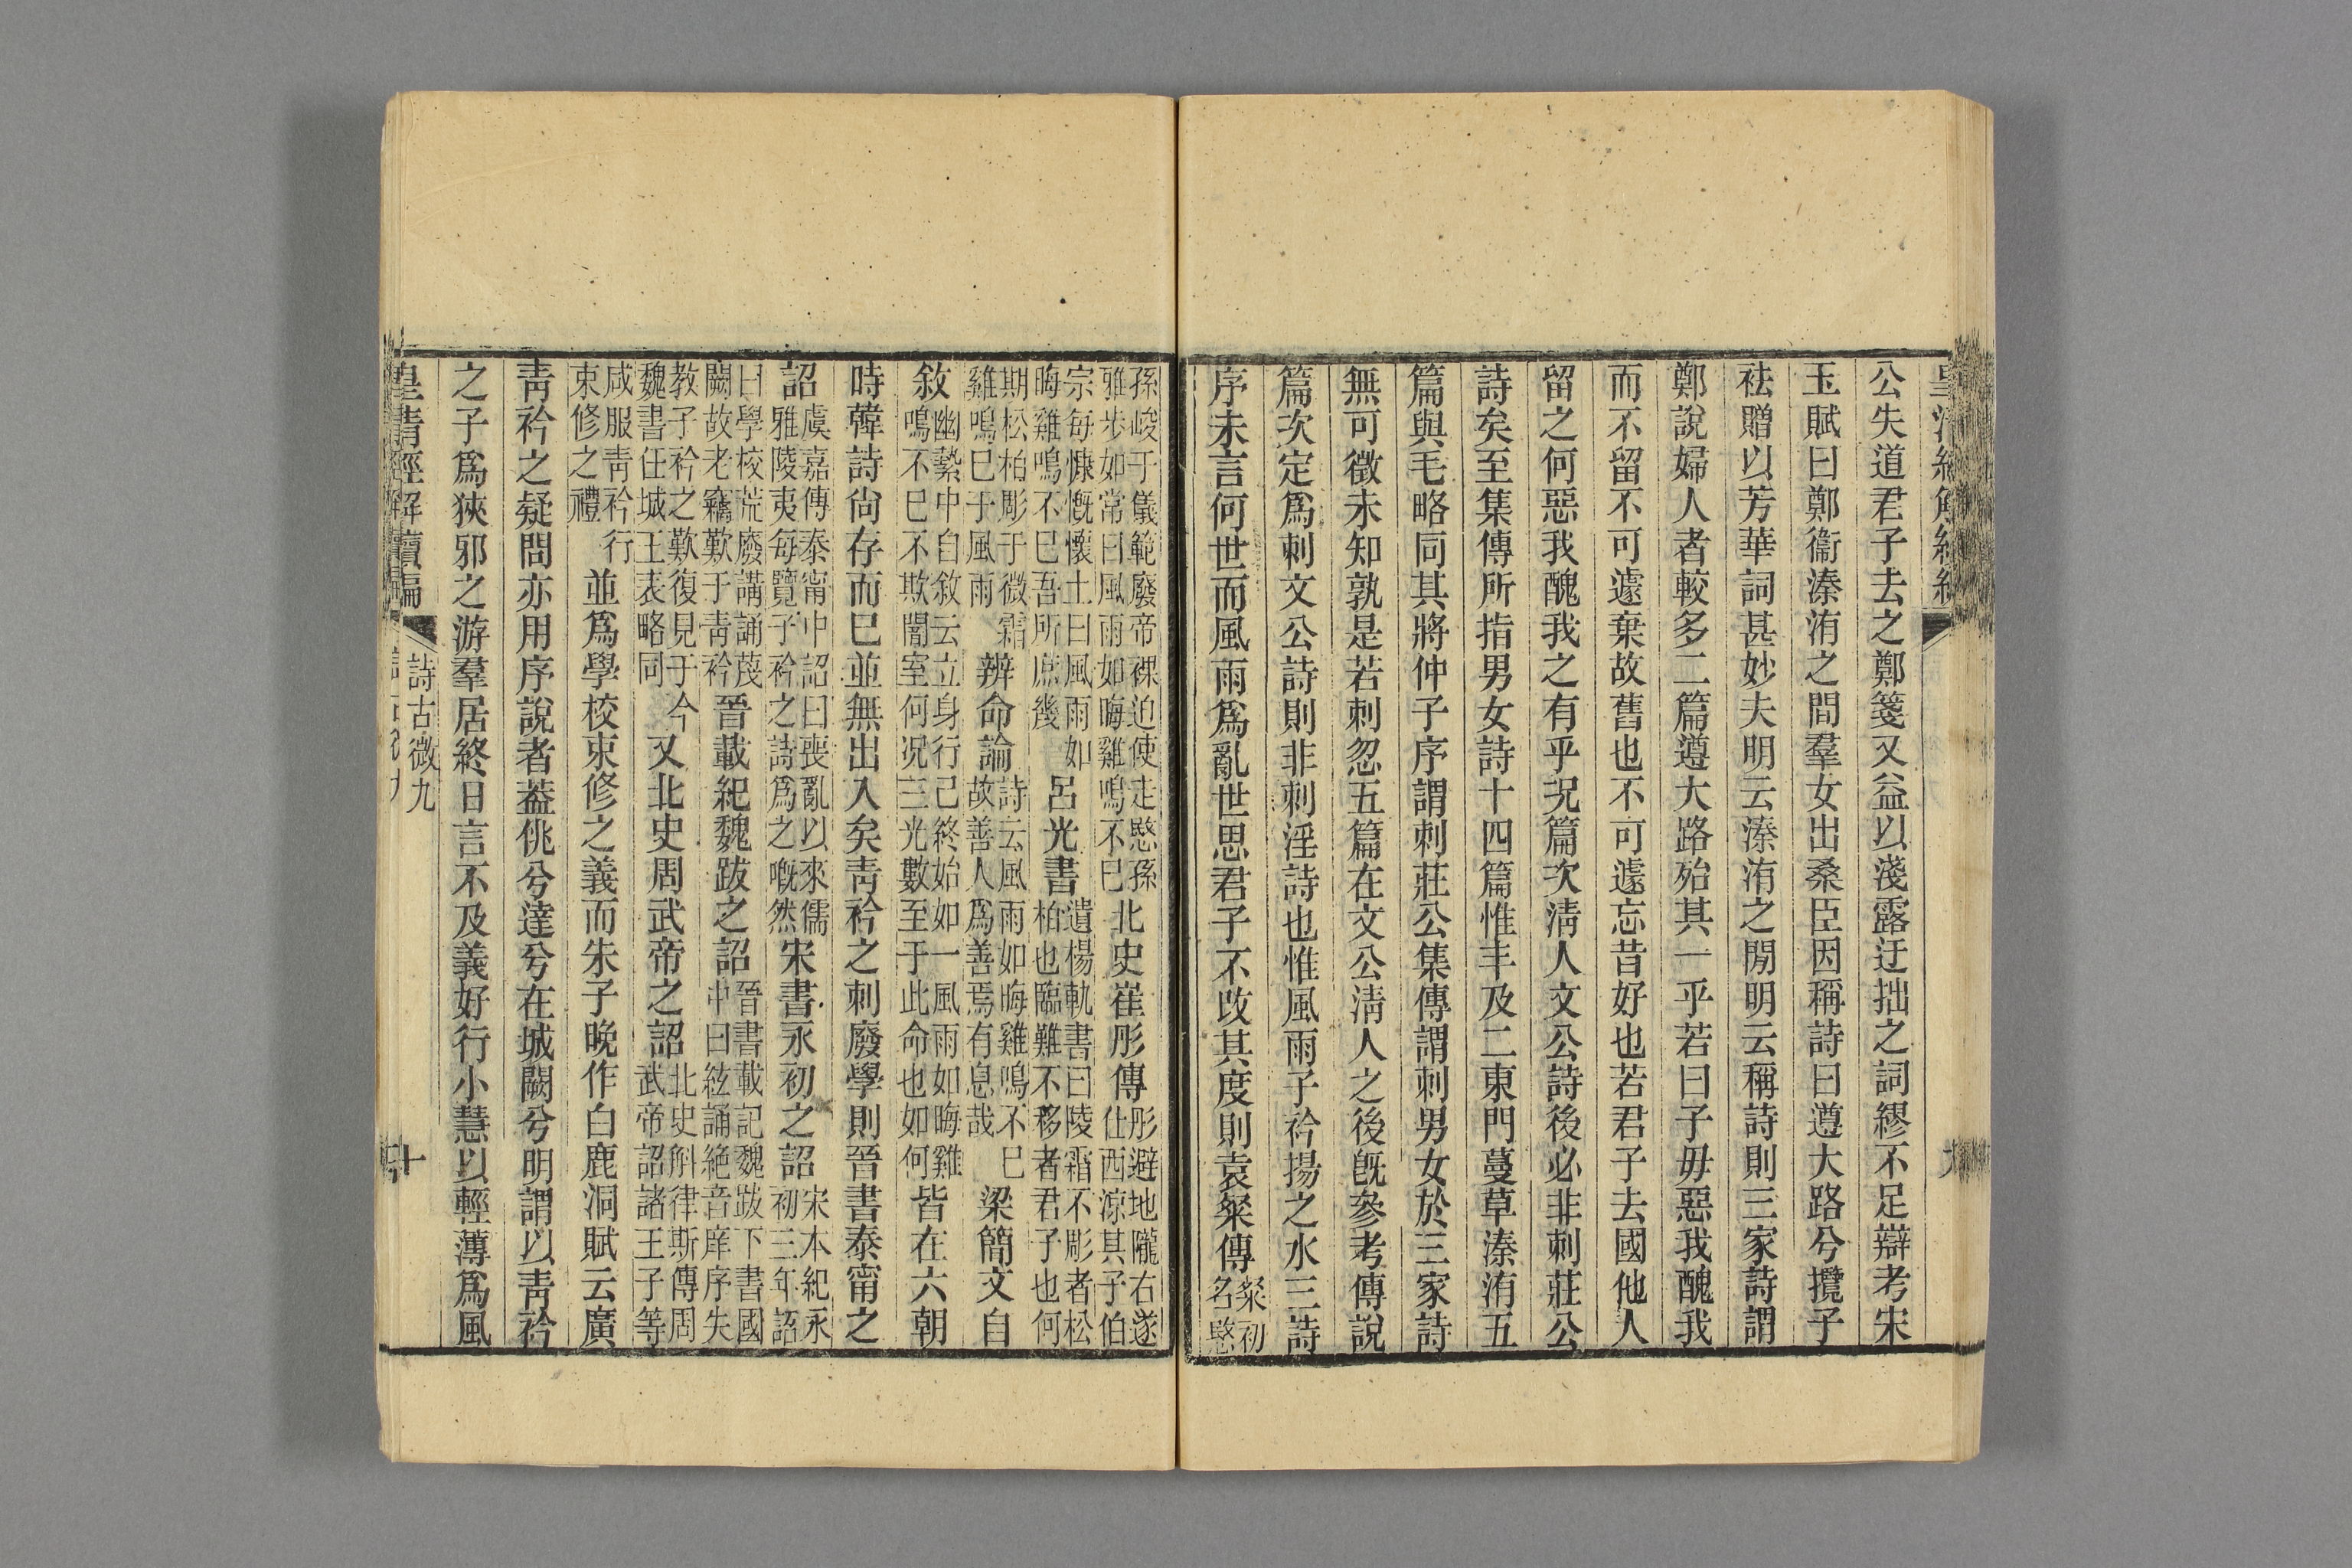 皇清經解續編
公失道君子去之鄭箋又益以淺露迂拙之詞繆不足辯考宋
玉賦曰鄭衞溱洧之間羣女出桑臣因稱詩曰遵大路兮攬子
袪贈以芳華詞甚妙夫明云溱洧之閒明云稱詩則三家詩謂
鄭說婦人者較多二篇遵大路殆其一乎若曰子毋惡我醜我
而不留不可遽棄故舊也不可遽忘昔好也若君子去國他人
留之何惡我醜我之有乎况篇次淸人文公詩後必非刺莊公
詩矣至集傳所指男女詩十四篇惟丰及二東門蔓草溱洧五
篇與毛略同其將仲子序謂刺莊公集傳謂刺男女於三家詩
無可徵未知孰是若刺忽五篇在文公淸人之後旣參考傳說
篇次定爲刺文公詩則非刺淫詩也惟風雨子衿揚之水三詩
序未言何世而風雨爲亂世思君子不改其度則袁粲傳粲初名愍
孫峻于儀範廢帝裸迫使走愍孫雅步如常曰風雨如晦雞鳴不已北史崔彤傳彤避地隴右遂仕西涼其子伯
宗每慷慨懷土曰風雨如晦雞鳴不已吾所庶幾呂光書遺楊軌書曰陵霜不彫者松柏也臨難不移者君子也何
期松柏彫于微霜雞鳴已于風雨辨命論詩云風雨如晦雞鳴不已故善人爲善焉有息哉梁簡文自
敘幽縶中自敘云立身行己終始如一風雨如晦雞鳴不已不欺闇室何况三光數至于此命也如何皆在六朝
時韓詩尙存而已並無出入矣靑衿之刺廢學則晉書泰甯之
詔虞嘉傳泰甯中詔曰喪亂以來儒雅陵夷每覽子衿之詩爲之嘅然宋書永初之詔宋本紀永初三年詔
曰學校荒廢講誦蔑闕故老竊歎于靑衿晉載紀魏跋之詔晉書載記魏跋下書國中曰絃誦絶音庠序失
教子衿之歎復見于今魏書任城王表略同又北史周武帝之詔北史斛律斯傳周武帝詔諸王子等
咸服靑衿行束修之禮並爲學校束修之義而朱子晩作白鹿洞賦云廣
靑衿之疑問亦用序說者葢佻兮達兮在城闕兮明謂以靑衿
之子爲狹邪之游羣居終日言不及義好行小慧以輕薄爲風
皇清經解續編 詩古微九 十